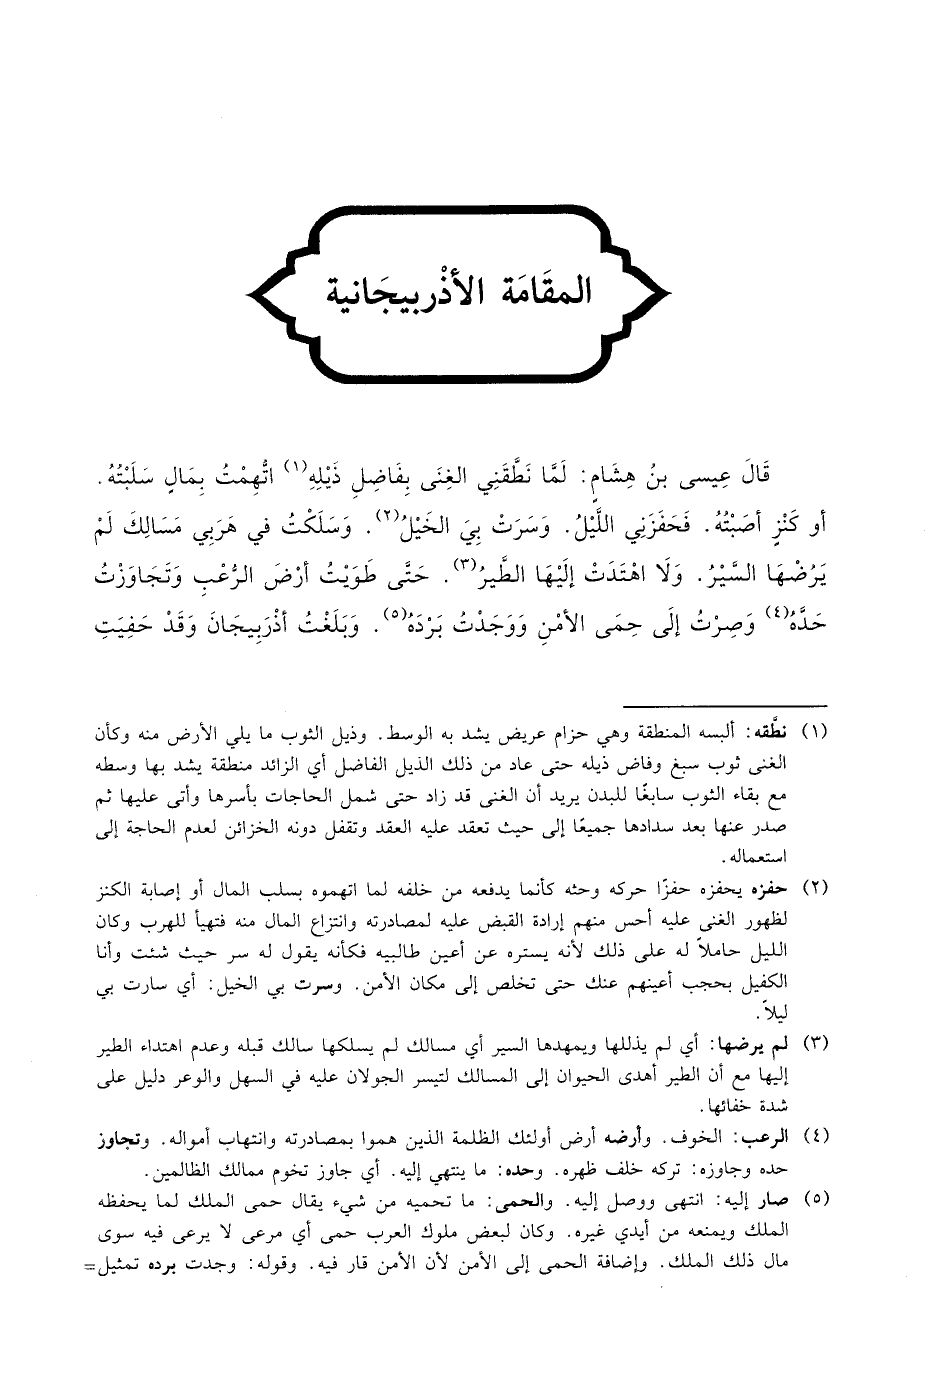 المقَامَة الأذْربيجَانية
قَالَ عِيسى بنُ هِشَام: لَمَّا نَطَّقَنِي الغِنَى بِفَاضِلِ ذَيْلِهِ(١) اتُّهِمْتُ بِمَالٍ سَلَبْتُهُ.
أو كَنْزٍ أصَبْتُهُ. فَحَفَزَنِي اللَّيْلُ. وَسَرَتْ بِيَ الخَيْلُ(٢). وَسَلَكْتُ في هَرَبِي مَسَالِكَ لَمْ
يَرُضْهَا السَّيْرُ. وَلَا اهْتَدَتْ إلَيْهَا الطَّيرُ(٣). حَتَّى طَوَيْتُ أرْضَ الرُّعْبِ وَتَجَاوَزْتُ
حَدَّهُ(٤) وَصِرْتُ إلَى حِمَى الأمْنِ وَوَجَدْتُ بَرْدَهُ(٥). وَبَلَغْتُ أذْرَبِيجَانَ وَقَدْ حَفِيَتِ
(١) نطَّقه: ألبسه المنطقة وهي حزام عريض يشد به الوسط. وذيل الثوب ما يلي الأرض منه وكأن
الغنى ثوب سبغ وفاض ذيله حتى عاد من ذلك الذيل الفاضل أي الزائد منطقة يشد بها وسطه
مع بقاء الثوب سابغًا للبدن يريد أن الغنى قد زاد حتى شمل الحاجات بأسرها وأتى عليها ثم
صدر عنها بعد سدادها جميعًا إلى حيث تعقد عليه العقد وتقفل دونه الخزائن لعدم الحاجة إلى
استعماله.
(٢) حفزه يحفزه حفزًا حركه وحثه كأنما يدفعه من خلفه لما اتهموه بسلب المال أو إصابة الكنز
لظهور الغنى عليه أحس منهم إرادة القبض عليه لمصادرته وانتزاع المال منه فتهيأ للهرب وكان
الليل حاملاً له على ذلك لأنه يستره عن أعين طالبيه فكأنه يقول له سر حيث شئت وأنا
الكفيل بحجب أعينهم عنك حتى تخلص إلى مكان الأمن. وسرت بي الخيل: أي سارت بي
ليلاً.
(٣) لم يرضها: أي لم يذللها ويمهدها السير أي مسالك لم يسلكها سالك قبله وعدم اهتداء الطير
إليها مع أن الطير أهدى الحيوان إلى المسالك لتيسر الجولان عليه في السهل والوعر دليل على
شدة خفائها.
(٤) الرعب: الخوف. وأرضه أرض أولئك الظلمة الذين هموا بمصادرته وانتهاب أمواله. وتجاوز
حده وجاوزه: تركه خلف ظهره. وحده: ما ينتهي إليه. أي جاوز تخوم ممالك الظالمين.
(٥) صار إليه: انتهى ووصل إليه. والحمى: ما تحميه من شيء يقال حمى الملك لما يحفظه
الملك ويمنعه من أيدي غيره. وكان لبعض ملوك العرب حمى أي مرعى لا يرعى فيه سوى
مال ذلك الملك. وإضافة الحمى إلى الأمن لأن الأمن قار فيه. وقوله: وجدت برده تمثيل=